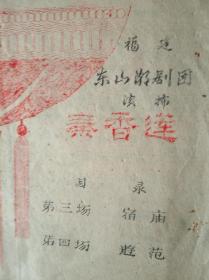 福建
东山潮剧团
演出
秦香莲
目录
第三场 宿庙
第四场 胜范